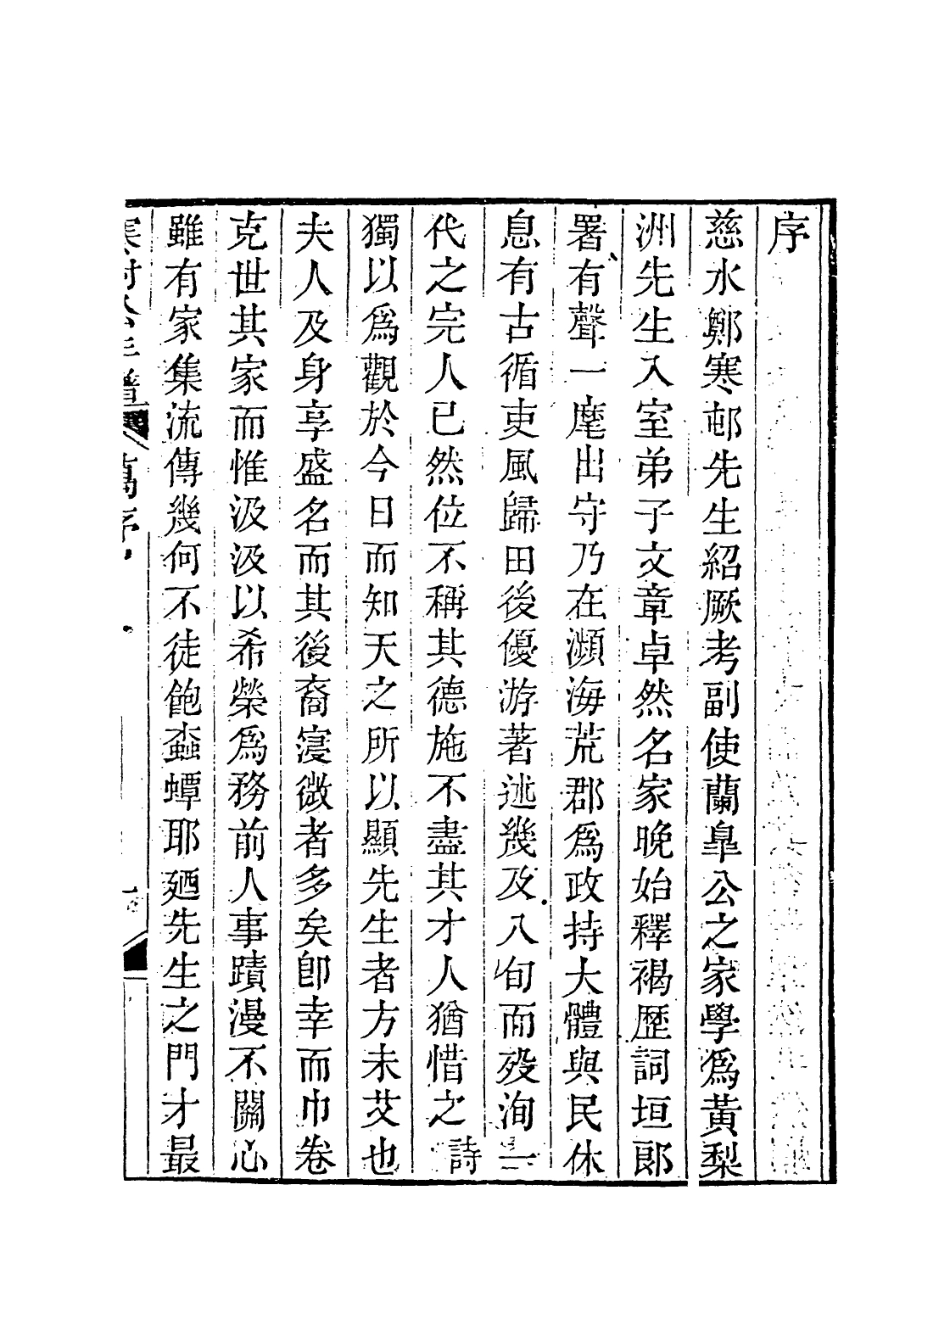 序
慈水鄭寒邨先生紹厥考副使蘭臯公之家學爲黃梨
洲先生入室弟子文章卓然名家晚始釋褐歴詞垣郎
署有聲一麾出守乃在瀕海荒郡爲政持大體與民休
息有古循吏風歸田後優游著述幾及八旬而歿洵一
代之完人已然位不稱其德施不盡其才人猶惜之詩
獨以爲觀於今日而知天之所以顯先生者方未艾也
夫人及身享盛名而其後裔寖微者多矣卽幸而巾卷
克世其家而惟汲汲以希榮爲務前人事蹟漫不關心
雖有家集流傳幾何不徒飽蟗蟫耶廼先生之門才最
寒村公年譜 萬序 一